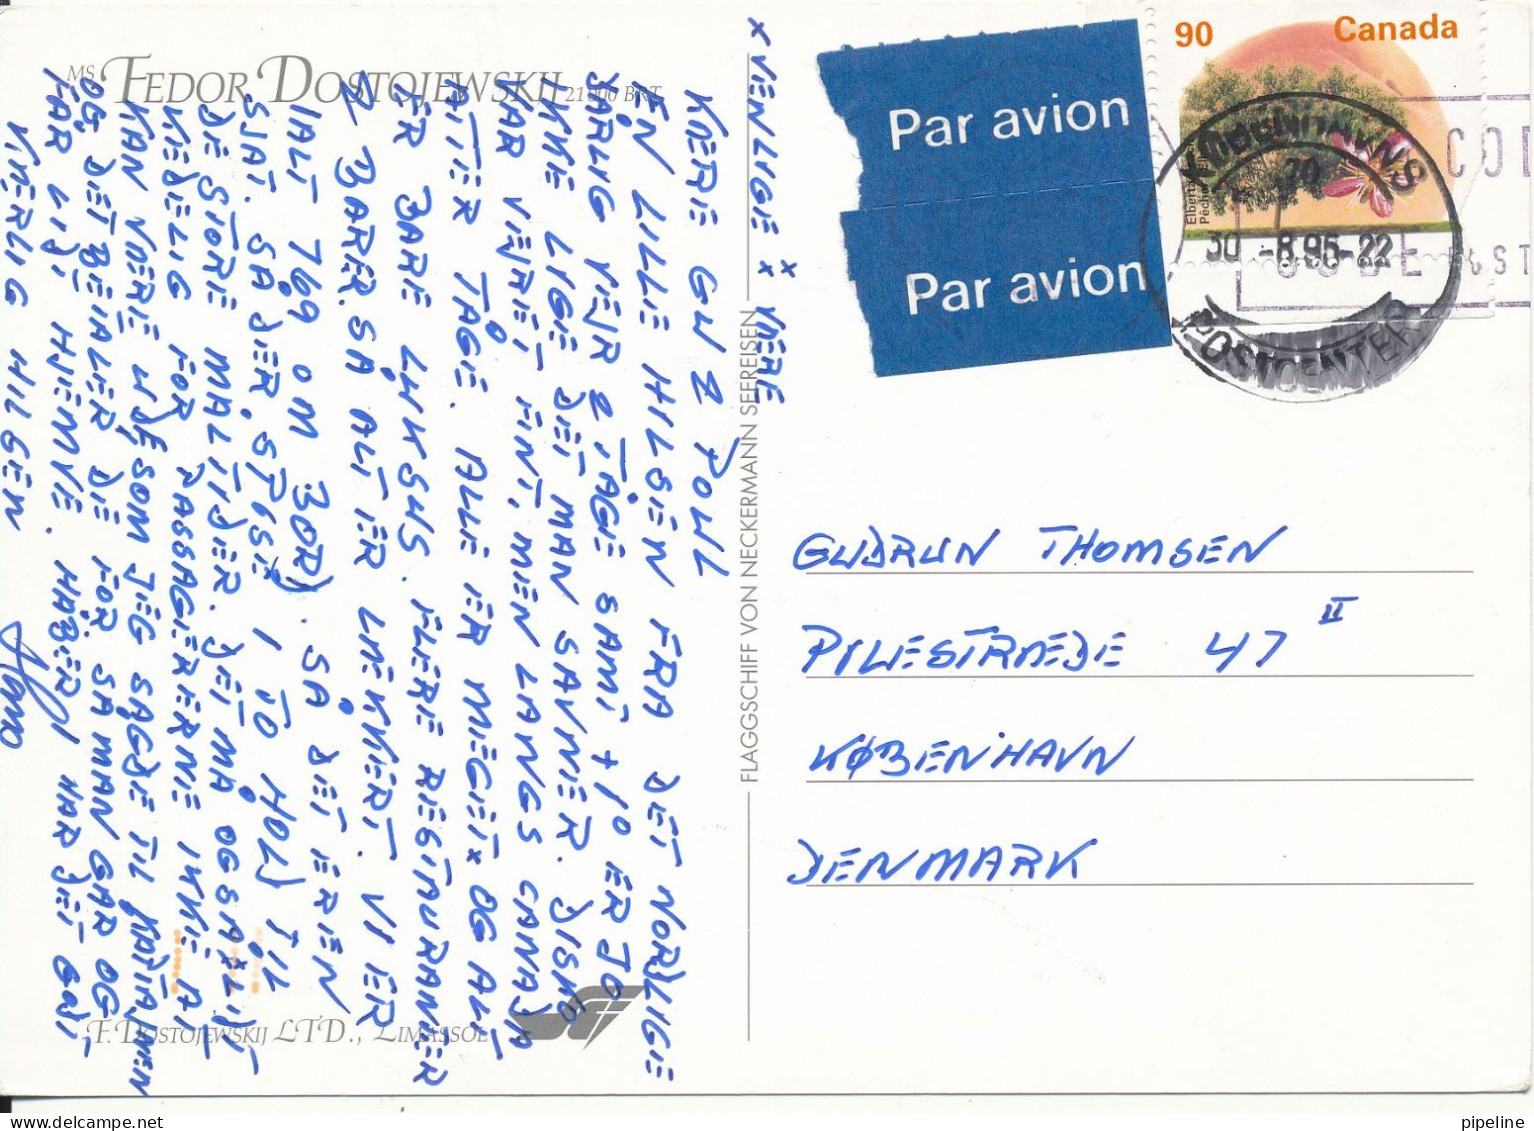 MS FEDOR DOSTOJEWSKIJ 21000 BRT
KÆRE GU & POUL
EN LILLE HILSEN FRA DET NORDLIGE
DÅRLIG VEJR 2 TAGE SAMT + 1° ER JO
IKKE LIGE DET MAN SAVNER. DISKO
VAR VEJRET FINT, MEN LANGS CANADA
ATTER TÅGE. ALLE ER MEGET OG ALT
ER BARE LUKSUS. FLERE RESTAURANTER
2 BARER. SÅ ALT ER LÆKKERT. VI ER
IALT 769 OM BORD. SÅ DET ER EN
SJAT. SÅ DER SPISES I TO HOLD TIL
DE STORE MÅLTIDER. DET MÅ OGSÅ LIDT
KEDELIG FOR PASSAGERERNE IKKE AT
KAN VÆRE UDE, SOM JEG SAGDE TIL KAPTAJNEN
OG DET BETALER DE FOR SÅ MAN GÅR OG
FÅR LIDT HJEMVE. HÅBER I HAR DET GODT
KÆRLIG HILSEN
× VENLIGE × × VÆRE
F. DOSTOJEWSKIJ LTD., LIMASSOL
FLAGGSCHIFF VON NECKERMANN SEEREISEN
Par avion
Par avion
90 Canada
KØBENHAVNS
30 -8.95-22
POSTCENTER
GUDRUN THOMSEN
PILESTRÆDE 47 II
KØBENHAVN
DENMARK
pipeline